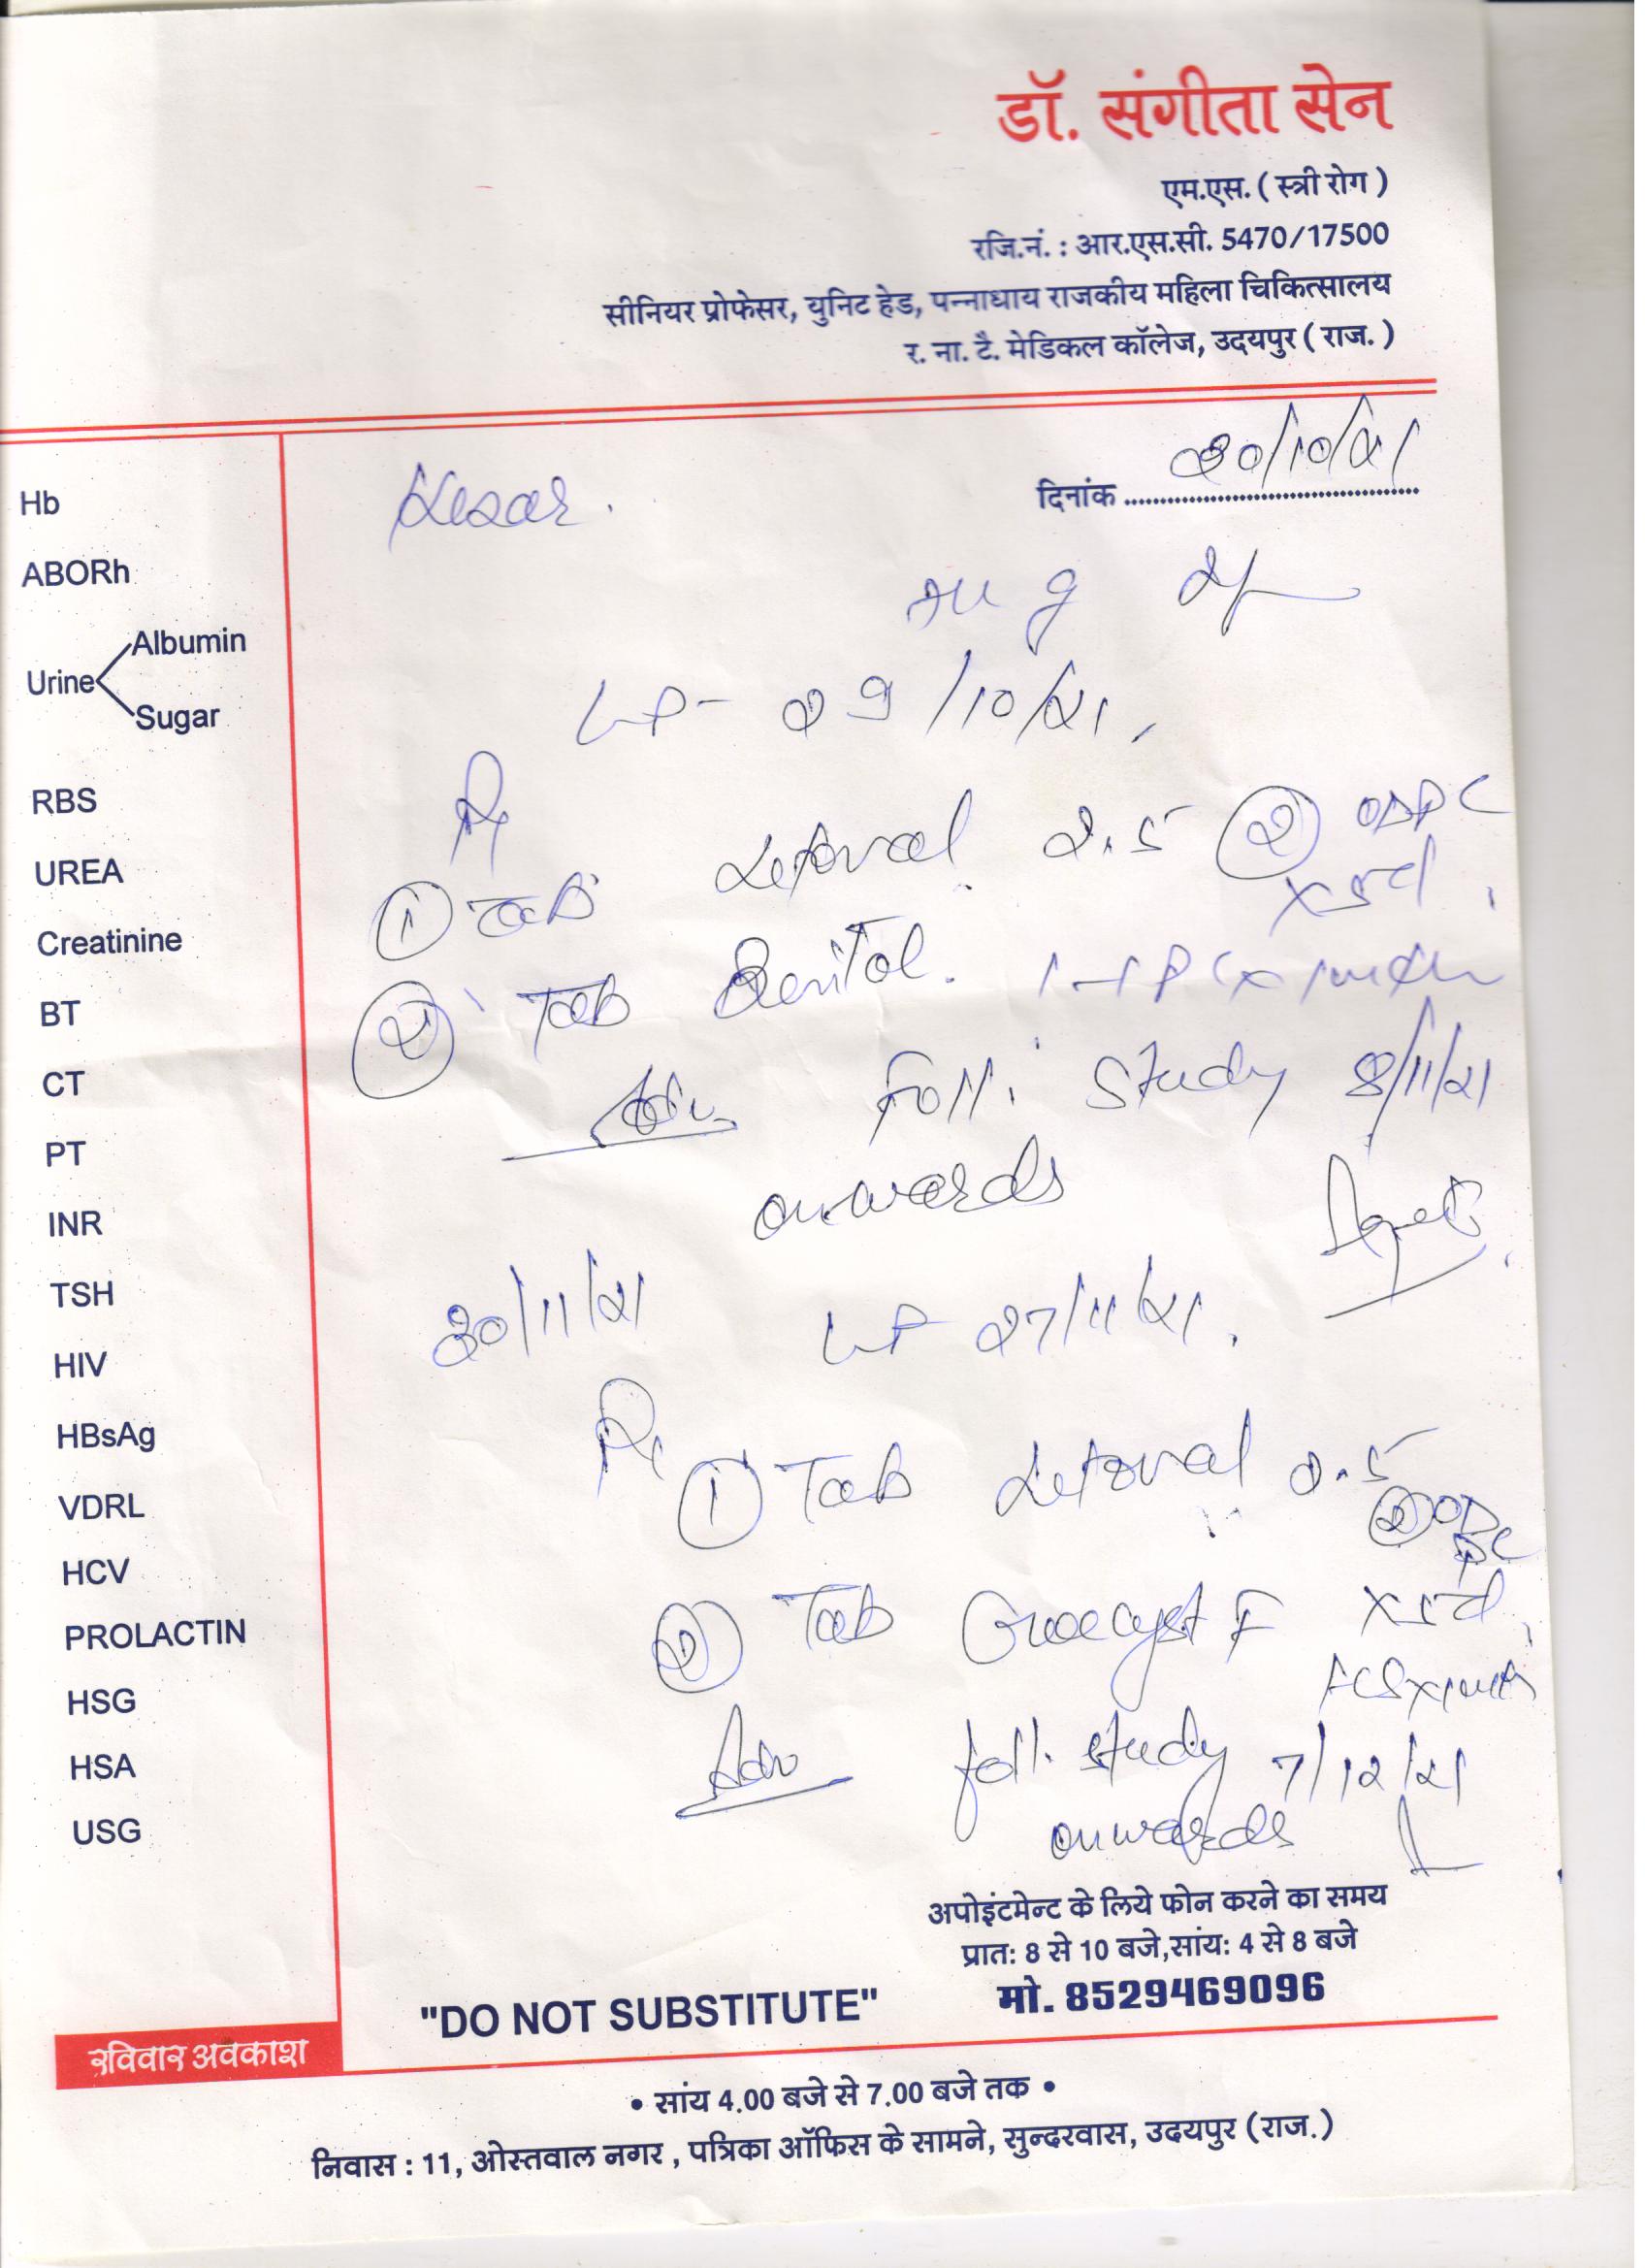 डॉ. संगीता सेन
एम.एस. ( स्त्री रोग )
रजि.नं. : आर.एस.सी. 5470/17500
सीनियर प्रोफेसर, युनिट हेड, पन्नाधाय राजकीय महिला चिकित्सालय
र. ना. टै. मेडिकल कॉलेज, उदयपुर ( राज. )
दिनांक 30/10/21
Hb
ABORh
Urine
Albumin
Sugar
RBS
UREA
Creatinine
BT
CT
PT
INR
TSH
HIV
HBsAg
VDRL
HCV
PROLACTIN
HSG
HSA
USG
29/10/21
Rx
① Tab Letoval 2.5 ② OD PC
x 5d
② Tab
Adv Foll. Study 8/11/21
onwards
30/11/21 27/11/21
Rx
① Tab Letoval 2.5
② OD PC
② Tab x 5d
Adv foll. study 7/12/21
onwards
अपोइंटमेन्ट के लिये फोन करने का समय
प्रात: 8 से 10 बजे,सांय: 4 से 8 बजे
मो. 8529469096
"DO NOT SUBSTITUTE"
रविवार अवकाश
• सांय 4.00 बजे से 7.00 बजे तक •
निवास : 11, ओस्तवाल नगर , पत्रिका ऑफिस के सामने, सुन्दरवास, उदयपुर (राज.)